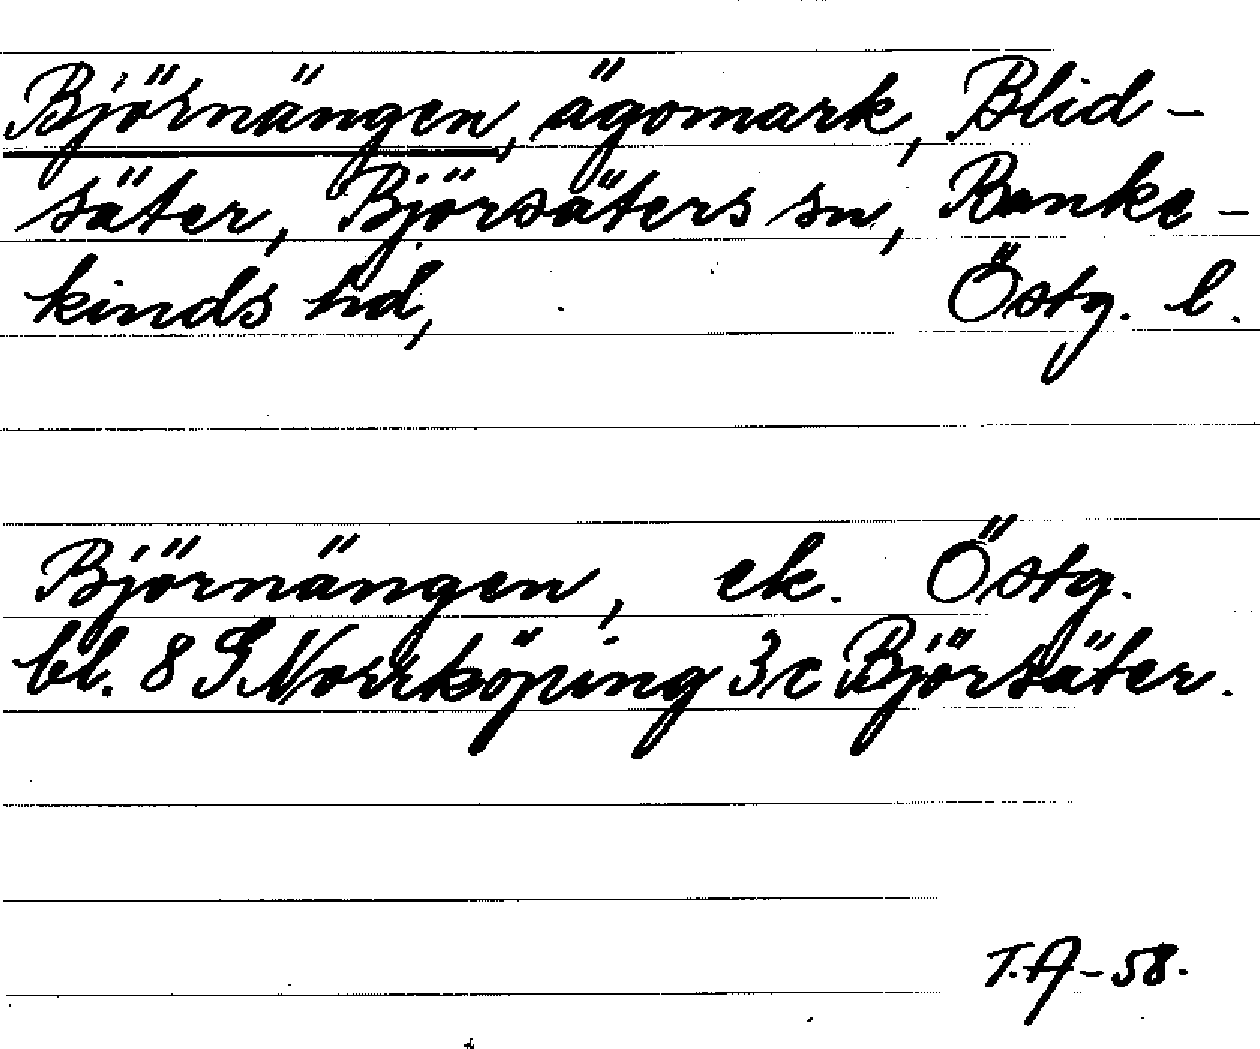 Björnängen, ägomark, Blid-
säter, Björsäters sn, Banke-
kinds hd, Östg. l.
Björnängen, ek. Östg.
bl. 8 G Norrköping 3c Björsäter.
T.A-58.